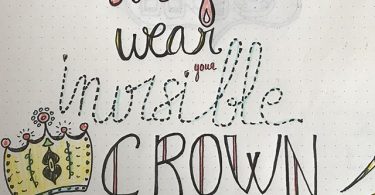 wear
your
invisible
CROWN